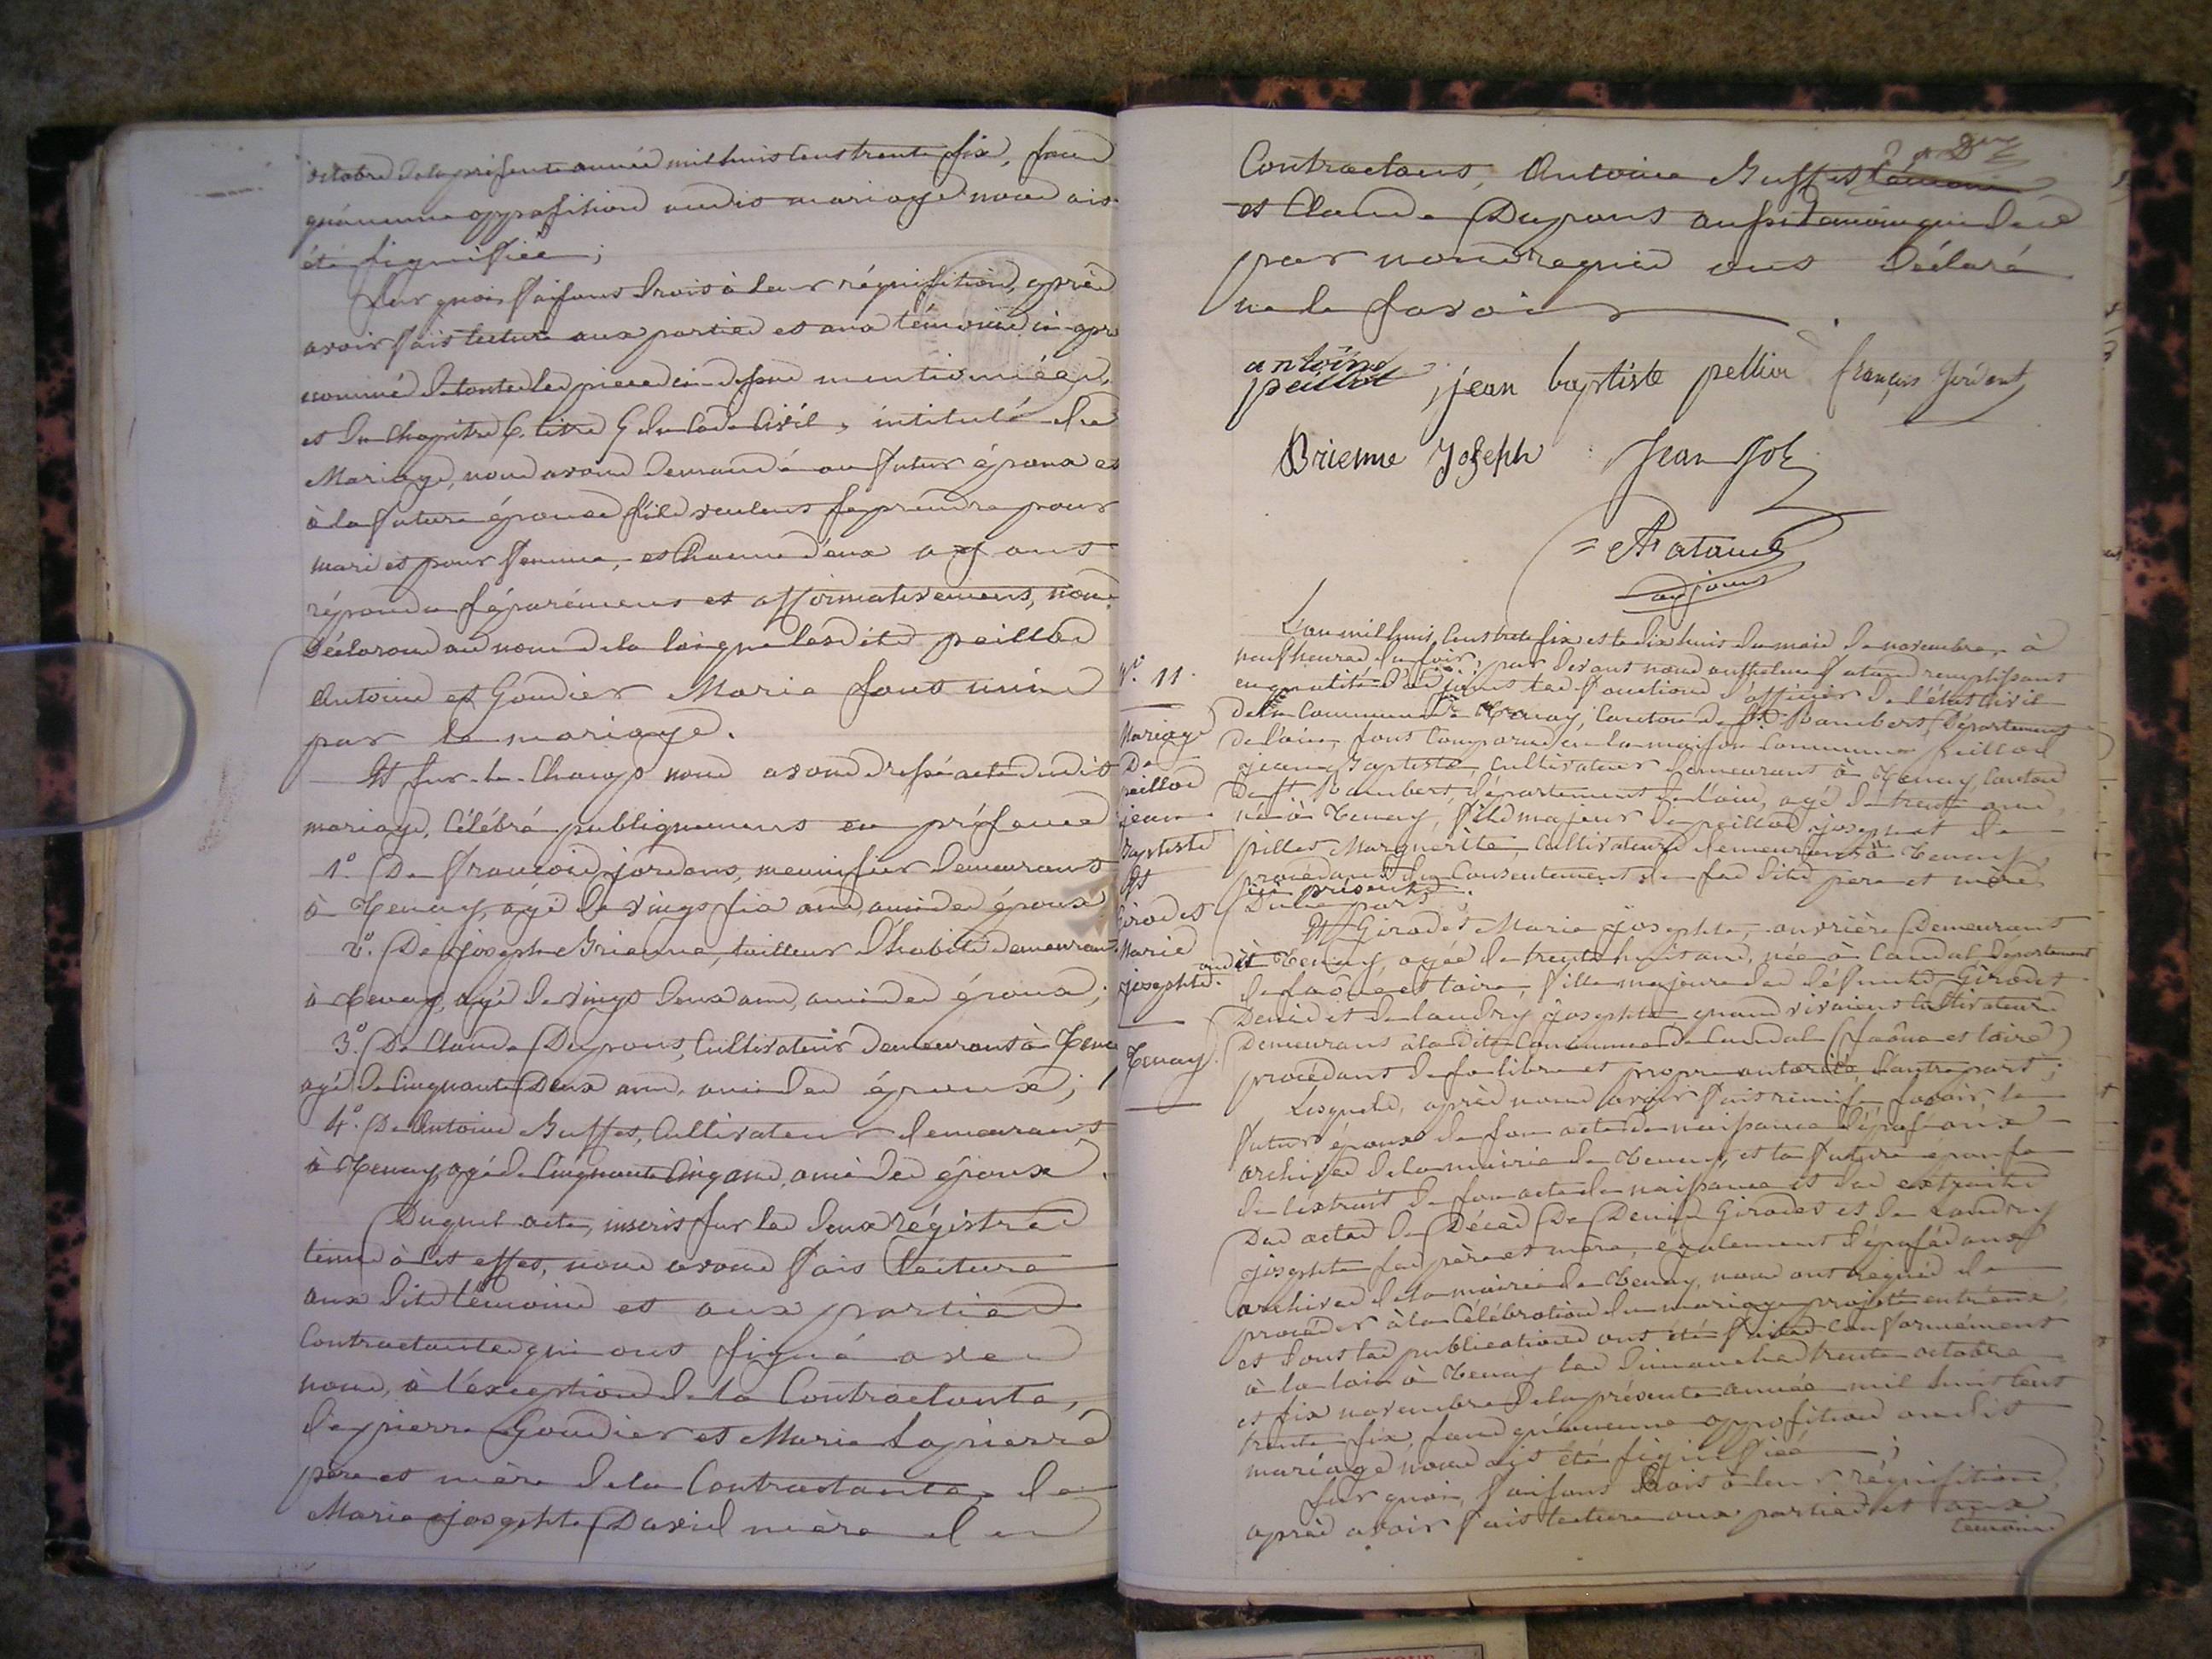 octobre de la présente année mil huit cent trente six, sans
qu'aucune opposition audit mariage nous ait
été signifiée;
Sur quoi, faisant droit à leur réquisition, après
avoir fait lecture aux parties et aux témoins ci-après
nommés de toutes les pieces ci-dessus mentionnées,
et du chapitre 6. titre 5 du Code Civil, intitulé du
Mariage, nous avons demandé au futur époux et
à la future épouse s'ils veulent se prendre pour
mari et pour femme, et chacun d'eux ayant
répondu séparément et affirmativement, nous
Déclarons au nom de la loi que lesdits peillod
Antoine et Goudier Marie sont unis
par le mariage.
Et sur-le-champ nous avons dressé acte dudit
mariage, célébré publiquement en présence
1º. De françois jordant, menuisier demeurant
à Tenay, agé de vingt six ans, ami des époux
2º. De joseph Brienne, tailleur d'habits demeurant
à Tenay, agé de vingt deux ans, ami des époux;
3º. De Claude Dupont, Cultivateur demeurant à Tenay
agé de Cinquante Deux ans, ami des époux;
4º. De Antoine Guffet, Cultivateur demeurant
à Tenay, agé de Cinquante Cinq ans, ami des époux.
Duquel acte, inscrit sur les deux régistres
tenus à cet effet, nous avons fait lecture
aux dits témoins et aux parties
Contractantes qui ont signé avec
nous, à l'exception de la Contractante,
de pierre Goudier et Marie Lapierre
père et mère de la Contractante, de
Marie josephte David mère du
Contractant, Antoine Guffet témoin
et Claude Dupont aussi témoin qui de ce
par nous requis ont déclaré
ne le savoir
antoine
peillod, jean baptiste pellioz françois Jordant
Brienne Joseph Jean Joly
adjoint
Nº. 11.
Mariage
De
peillod
jean
Baptiste
Et
Girodet
Marie
josephte.
Tenay.
L'an mil huit cent trente six et le dix huit du mois de novembre, à
neuf heures du soir, par devant nous Anthelme Fatand remplissant
en qualité d'adjoint les fonctions d'officier de l'état civil
de la Commune de Tenay, Canton de St. Rambert, Département
de l'ain, sont Comparus en la maison Commune peillod
jean Baptiste, Cultivateur demeurant à Tenay, Canton
De St. Rambert, département de l'ain, agé de trente ans,
né à Tenay, fils majeur de peillod joseph et de
pillet Marguerite, Cultivateurs demeurant à Tenay,
procédant du Consentement de ses dits père et mère
ici présents
D'une part;
Et Girodet Marie josephte, ouvrière Demeurant
audit Tenay, agée de trente huit ans, née à Condal Département
de saône et loire, fille majeure des défunts Girodet
Denis et de landry josephte quand vivaient Cultivateurs
Demeurant à la dite Commune de Condal (saône et loire)
procédant de sa libre et propre autorité, D'autre part;
Lesquels, après nous avoir fait remise savoir le
futur époux de son acte de naissance déposé aux
archives de la mairie de Tenay, et la future épouse
de l'extrait de son acte de naissance et des extraits
Des actes de Décès De Denis Girodet et de Landry
josephte ses père et mère, également déposés aux
archives de la mairie de Tenay, nous ont requis de
procéder à la Célébration du mariage projeté entr'eux,
et dont les publications ont été faites Conformément
à la loi à Tenay les dimanches trente octobre
et six novembre de la présente année mil huit cent
trente six, sans qu'aucune opposition audit
mariage nous ait été signifiée;
Sur quoi, faisant droit à leur réquisition,
après avoir fait lecture aux parties et aux
témoins